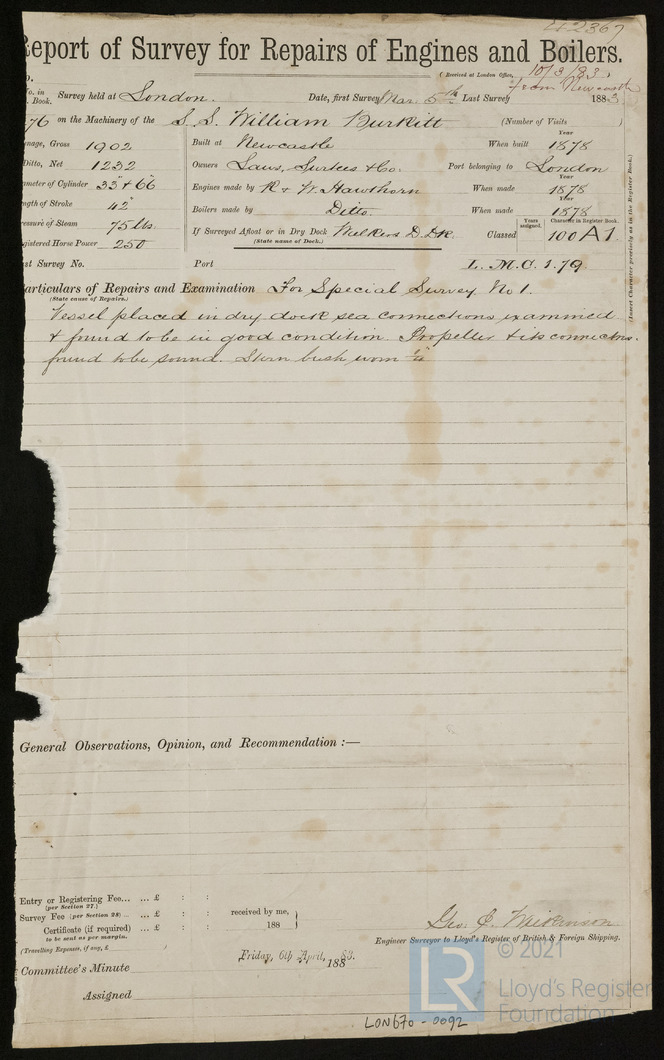 42367
Report of Survey for Repairs of Engines and Boilers.
(Received at London Office, 10/3/83.
from Newcastle
No. in Book. Survey held at London. Date, first Survey Mar. 5th Last Survey 1883
76 on the Machinery of the S.S. William Burkitt (Number of Visits )
Tonnage, Gross 1902 Built at Newcastle When built Year 1878
Ditto, Net 1232 Owners Laws, Surtees & Co. Port belonging to London
Diameter of Cylinder 33" & 66" Engines made by R & W. Hawthorn When made Year 1878
Length of Stroke 42" Boilers made by Ditto When made Year 1878
Pressure of Steam 75 lbs. If Surveyed Afloat or in Dry Dock Walkers D. Dk. Classed Years assigned. Character in Register Book. 100 A1.
(State name of Dock.)
Registered Horse Power 250
(Insert Character precisely as in the Register Book.)
Last Survey No. Port L.M.C. 1.79
Particulars of Repairs and Examination For Special Survey No 1.
(State cause of Repairs.)
Vessel placed in dry dock sea connections examined
& found to be in good condition. Propeller & its connections
found to be sound. Stern bush worn
General Observations, Opinion, and Recommendation :—
Entry or Registering Fee... ... £ : :
(per Section 27.)
Survey Fee (per Section 28)... ... £ : : received by me,
Certificate (if required) ... £ : : 188
to be sent as per margin.
(Travelling Expenses, if any, £ )
Geo. 
Engineer Surveyor to Lloyd's Register of British & Foreign Shipping.
Friday, 6th April, 1883.
Committee's Minute 188
Assigned
LON670-0092
© 2021
LR
Lloyd's Register
Foundation